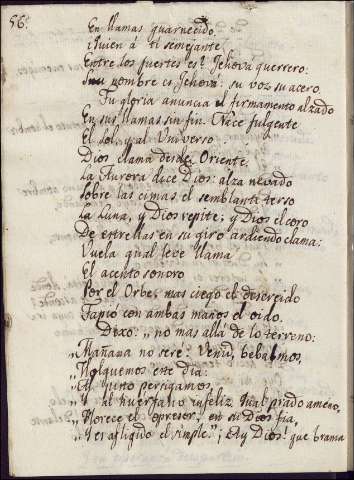 56.
En llamas guarnecido.
¿Quien á ti semejante
Entre los fuertes es? Jehova guerrero:
Su nombre es Jehova: su voz su acero.
Tu gloria anuncia el firmamento alzado
En sus llamas sin fin. Nace fulgente
El Sol, y al Universo
Dios clama desde Oriente.
La Aurora dice Dios: alza nevado
Sobre las cimas el semblante terso
La Luna, y Dios repite; y Dios el coro
De entrellas en su giro ardiendo clama:
Vuela qual leve llama
El acento sonoro
Por el Orbe; mas ciego el descreido
Tapió con ambas manos el oido.
Dixo: „no mas allá de lo terreno:
„Mañana no seré: Venid, bebabmos,
„Holguemos este dia:
„Al justo persigamos,
„Y al huerfano infeliz. Qual prado ameno,
„Florece el opresor; en su Dios fia,
„Y es afligido el simple.” ¡Ay Dios! que brama